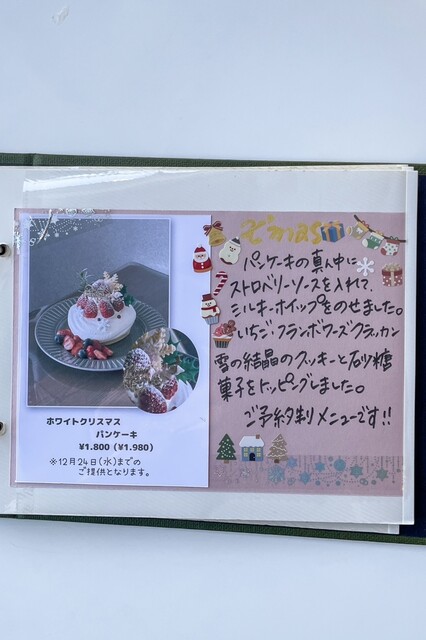 ホワイトクリスマス
パンケーキ
¥1.800 (¥1.980)
※12月24日(水)までの
ご提供となります。
X'mas
パンケーキの真ん中に
ストロベリーソースを入れて、
ミルキーホイップをのせました。
いちご・フランボワーズクラッカン
雪の結晶のクッキーと砂糖
菓子をトッピングしました。
ご予約制メニューです!!